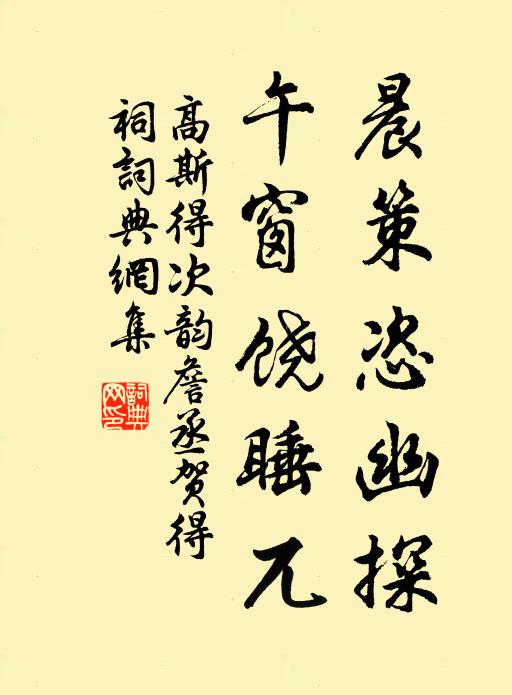 晨策恣幽探
午窗饶睡兀
高斯得次韵詹丞贺得
祠詞典網集
詞典網印